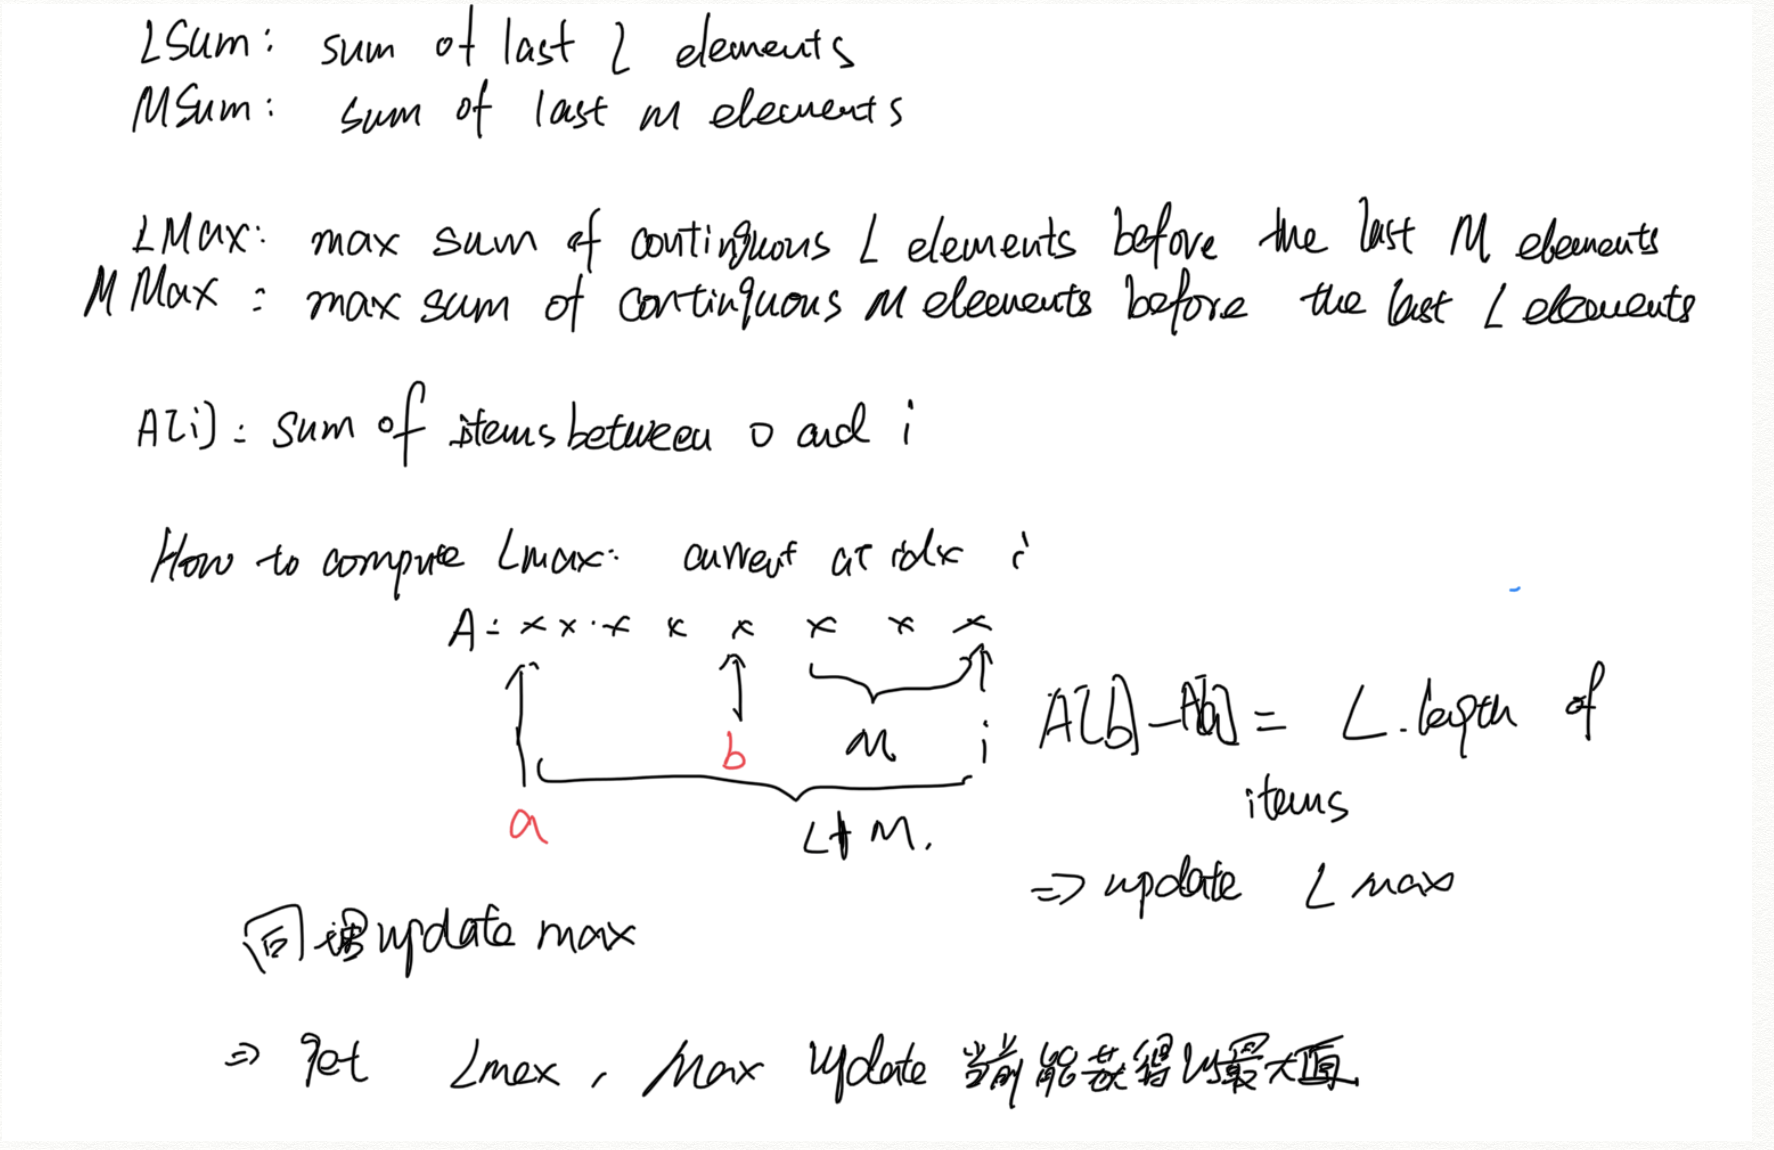 LSum: sum of last L elements
MSum: sum of last M elements
LMax: max sum of continguous L elements before the last M elements
MMax: max sum of continguous M elements before the last L elements
A[i]: sum of items between 0 and i
How to compute Lmax: current at idx i
A: x x . x x x x x x
b M i A[b]-A[a] = L.length of
a L+M. items
⇒ update Lmax
同理 update max
⇒ get Lmax, Max update 当前能获得的最大值